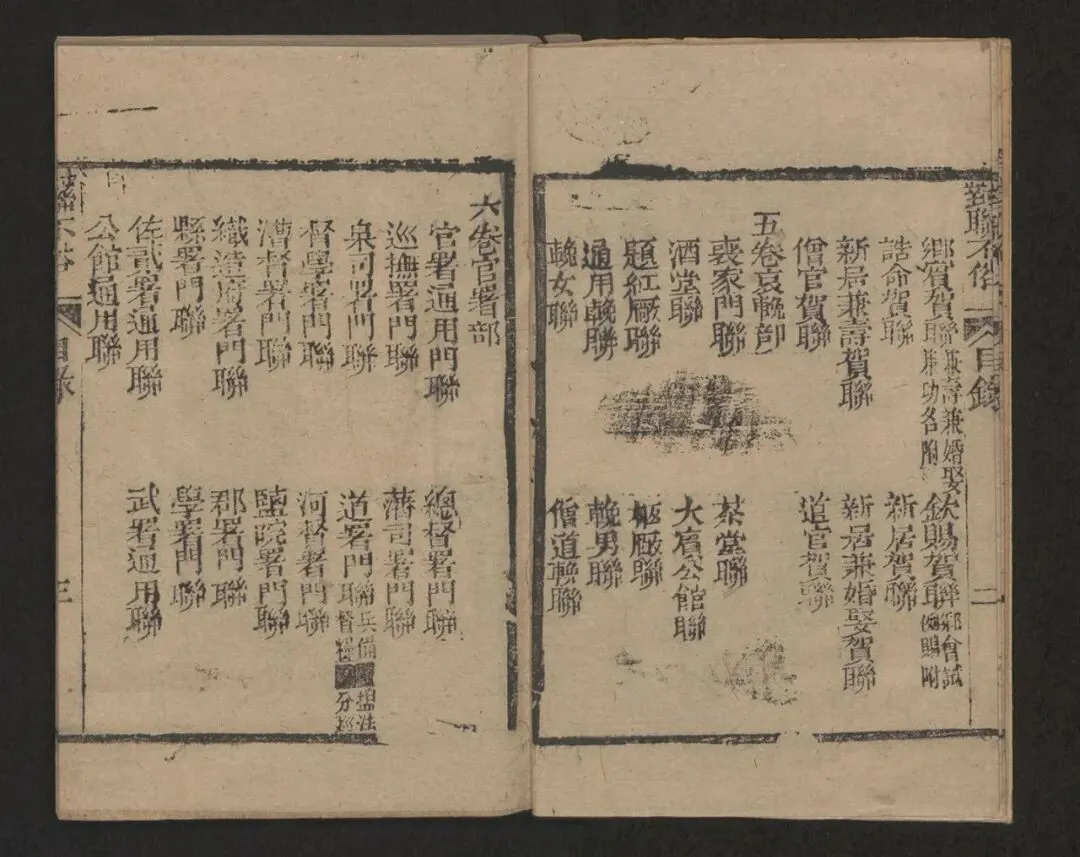 對聯不俗 目錄 二
鄉賓賀聯 兼壽兼婚娶 兼功名附 欽賜賀聯 鄉會試 賜附
誥命賀聯 新居賀聯
新居兼壽賀聯 新居兼婚娶賀聯
僧官賀聯 道官賀聯
五卷哀輓部
喪家門聯 茶堂聯
酒堂聯 大賓公館聯
題紅廠聯 柩廠聯
通用輓聯 輓男聯
輓女聯 僧道輓聯
六卷官署部
官署通用門聯 總督署門聯
巡撫署門聯 藩司署門聯
臬司署門聯 道署門聯 兵備 鹽法 督糧 分巡
督學署門聯 河督署門聯
漕督署門聯 鹽院署門聯
織造府署門聯 郡署門聯
縣署門聯 學署門聯
佐貳署通用聯 武署通用聯
公館通用聯
聯不俗 目錄 三